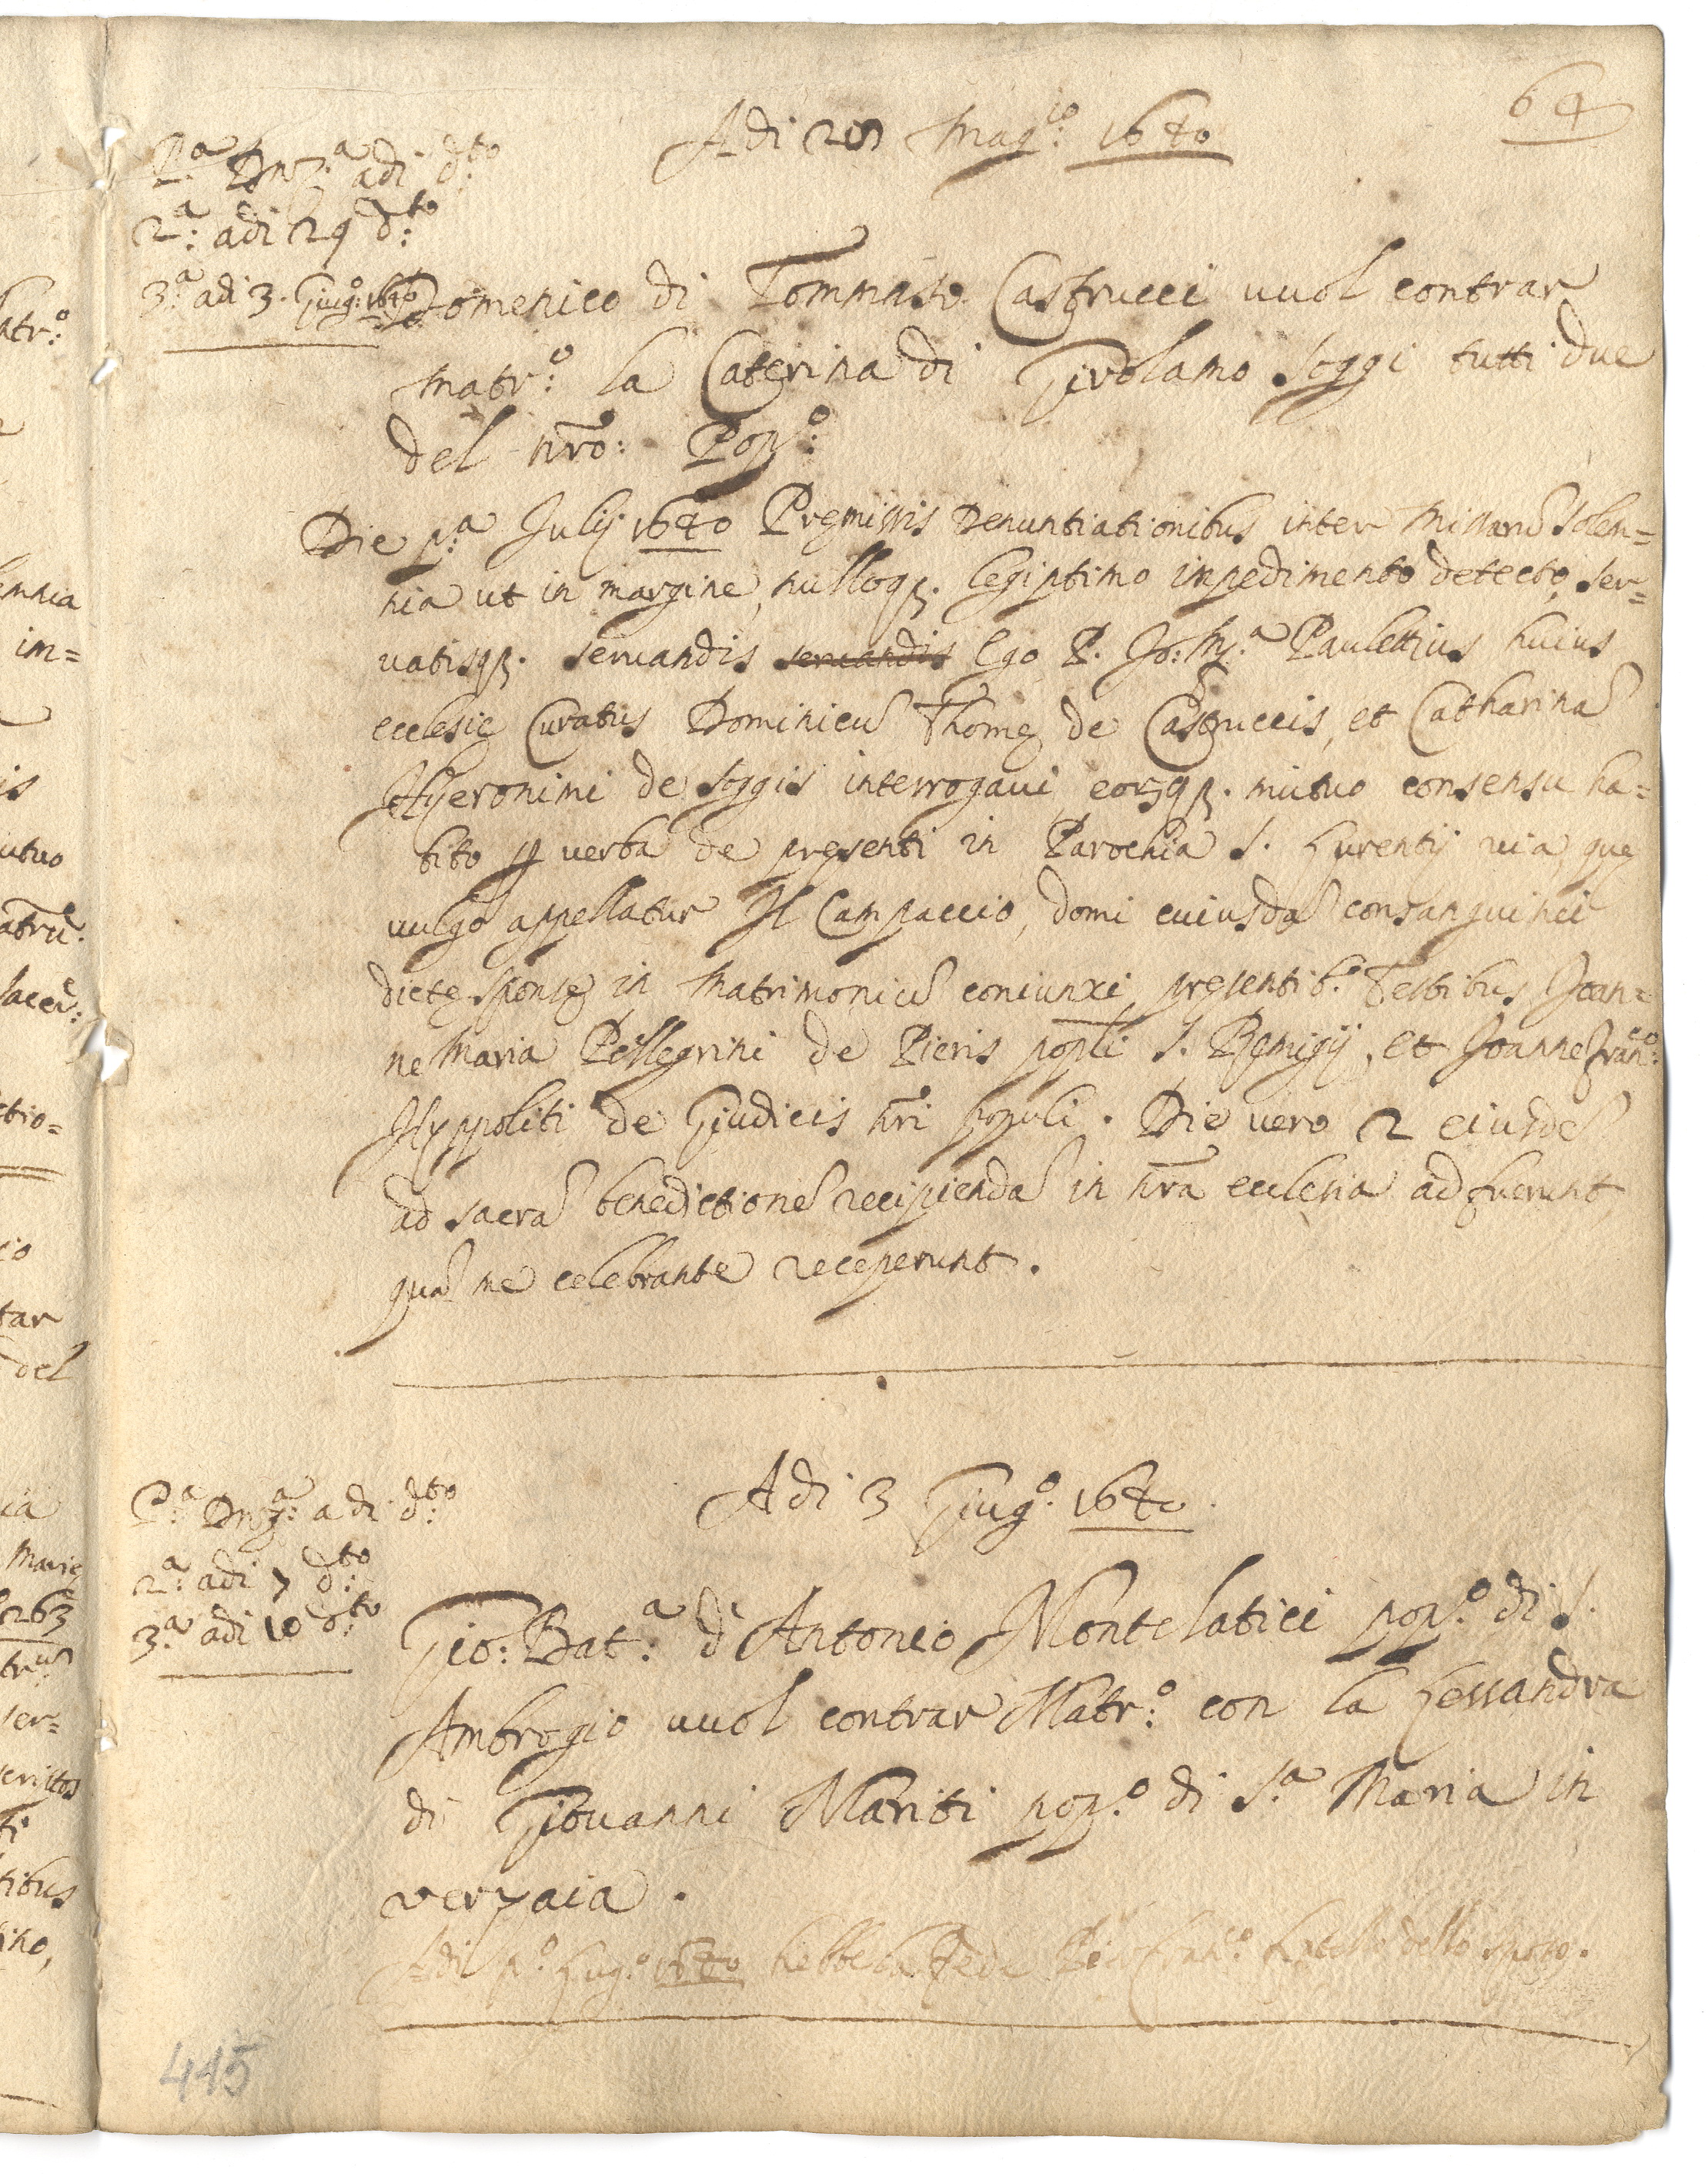 64
Adi 20 Mag:io 1640
P:a Dnz:a adi d:to
2:a adi 29 d:to
3:a adi 3. Giug:o 1640
Domenico di Tommaso Castrucci vuol contrar
matr:o la Caterina di Girolamo Soggi tutti due
del nro: Pop:o
Die p:a Julij 1640 Premissis Denuntiationibus inter Missarũ solem=
nia ut in margine, nulloqȝ. legiptimo impedimento detecto, ser=
uatisqȝ. seruandis seruandis Ego P. Jo: M:a Paulettius huius
ecclesie Curatus Dominicũ Thomę de Castruccis, et Catharinã
Hyeronimi de Soggis interrogaui eorȝqȝ. mutuo consensu ha=
bito ꝑ verba de presenti in Parochia S. Laurentij via, quę
vulgo appellatur Il Campaccio, domi cuiusdã consanguinei
dictę sponsę in Matrimoniũ coniunxi, presentib.s Testibus Joan=
ne Maria Pellegrini de Pieris popli S. Remigij, et Joanne Fran:co
Hyppoliti de Giudicis nri populi. Die vero 2 eiusdẽ
ad sacrã benedictionẽ recipiendã in nra ecclesia adfuerunt
quã me celebrante receperunt.
Adi 3 Giug:o 1640.
P:a Dnz:a adi d:to
2:a adi 7 d:to
3:a adi 10 d:to
Gio: Bat:a d'Antonio Montelatici pop:o di S.
Ambrogio vuol contrar Matr:o con la Lessandra
di Giouanni Mariti pop:o di S.a Maria in
verzaia.
Adi p:o Lug:o 1640 hebbe la Fede fratello dello sposo.
415